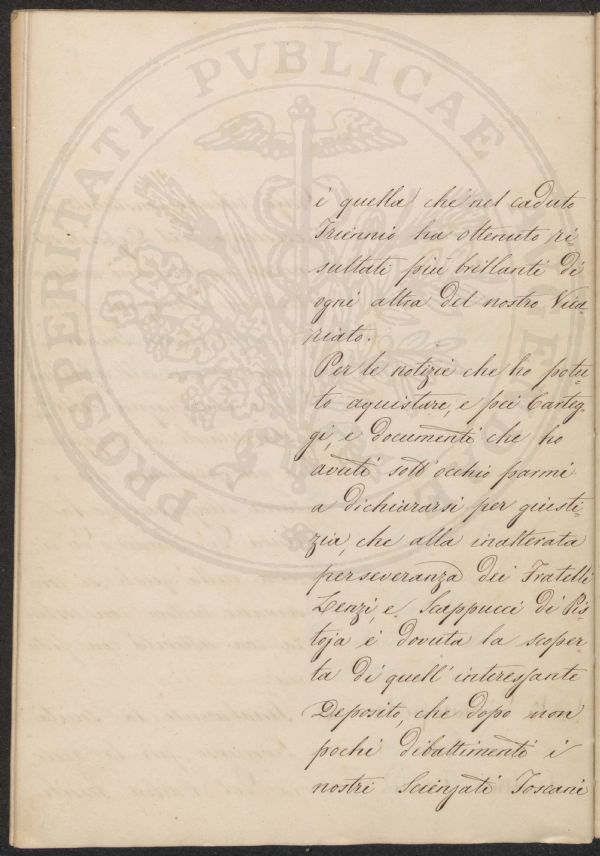 PROSPERITATI PVBLICAE
è quella che nel caduto
Triennio ha ottenuto ri-
sultati più brillanti di
ogni altra del nostro Vica-
riato.
Per le notizie che ho potu-
to aquistare, e pei Carteg-
gi, e documenti che ho
avuti sott'occhio parmi
a dichiararsi per giusti-
zia, che alla inalterata
perseveranza dei Fratelli
Lenzi, e Scappucci di Pis
toja è dovuta la scoper-
ta di quell'interessante
Deposito, che dopo non
pochi dibattimenti i
nostri Scienziati Toscani